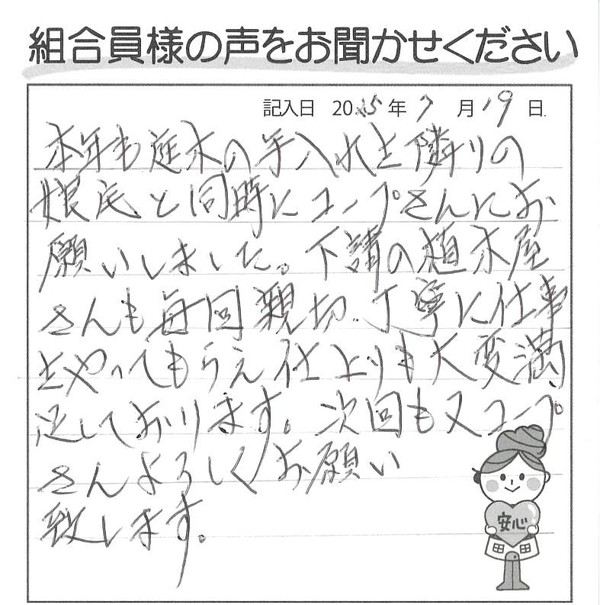 組合員様の声をお聞かせください
記入日 2025年7月19日
本年も庭木の手入れを隣りの
娘宅と同時にコープさんにお
願いしました。下請の植木屋
さんも毎回親切、丁寧に仕事
をやってもらえ仕上りも大変満
足しております。次回も又コープ
さんよろしくお願い
致します。
安心